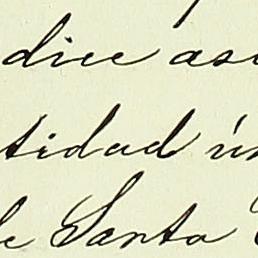 dice as
tidad ú
de Santa